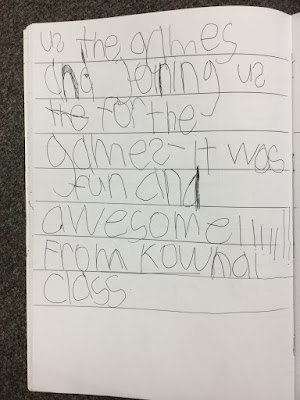 us the games
and joining us
the for the
games- it was
fun and
awesome!!!!!!!
From Kowhai
class